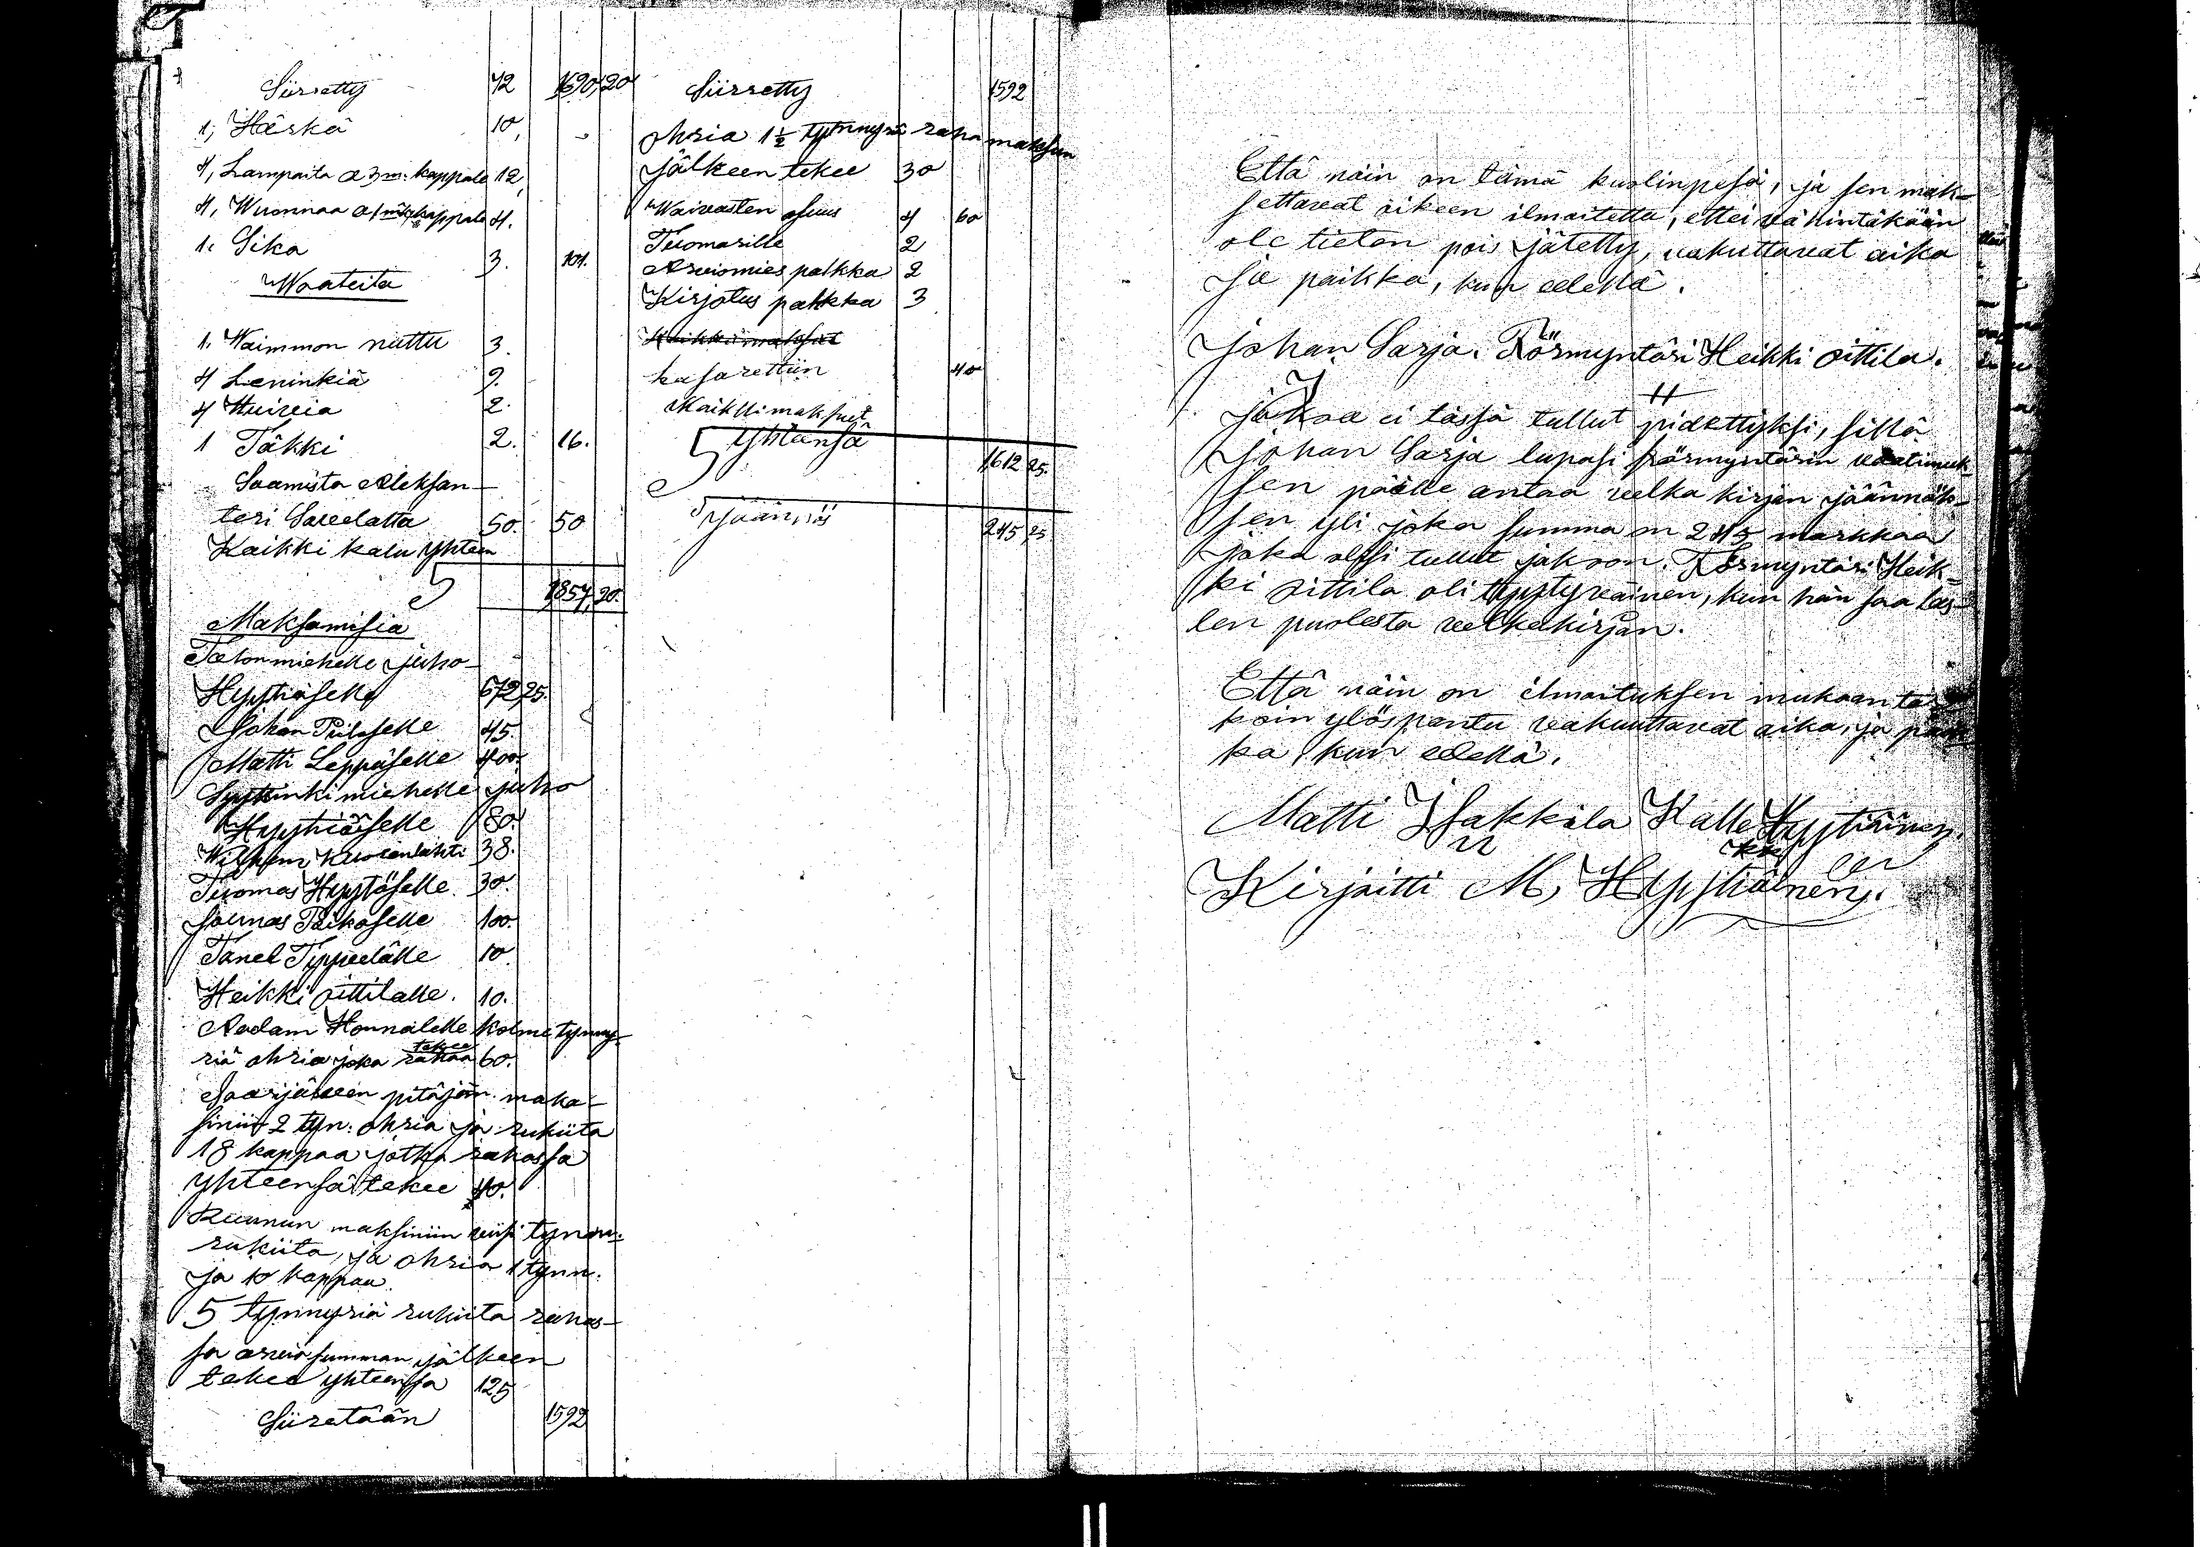 Siirretty 72 1690 20
1, Häskä 10,
4, Lampaita a 3 m: kappale 12,
4, Wuonnaa a 1 mk kappale 4.
1. Sika 3. 101.
Waateita
1. Waimmon nuttu 3.
4 Leninkiä 9.
4 Huivia 2.
1 Täkki 2. 16.
Saamista Aleksan-
teri Savelatta 50. 50
Kaikki kalu yhteen
sä 1857,20.
Maksamisia
Talonmiehelle Juho
Hyytiäselle 672,25.
Johan Piilaselle 45.
Matti Leppäselle 400.
Syytinkimiehelle Juho
Hyytiäiselle 80.
Wilhem Kuosenlahti 38.
Tuomas Hyytiäselle 30.
Joonas Poikaselle 100.
Tanel Tippeelälle 10
Heikki Oittilalle. 10.
Aadam Honnalelle kolme tynny-
riä ohria joka tekee rahaa 60.
Saarijärven pitäjän maka-
siniin 2 tyn: ohria ja rukiita
18 kappaa jotka rahassa
yhteensä tekee 40.
Ruunun maksiniin viisi tynny:
rukiita, ja ohria 1 tynn.
ja 10 kappaa
5 tynnyriä rukiita rahas-
sa arvio summan jälkeen
tekee yhteensä 125
Siiretään 1592
Siirretty 1592
ohria 1½ tynnyriä raha maksun
jälkeen tekee 30
Waivasten osuus 4 60
Tuomarille 2
Arviomies palkka 2
Kirjotus palkka 3
Kaikki maksut
kasarettiin 40
Kaikki maksut
yhtänsä 1612 25.
jäännös 245 25.
Että näin on tämä kuolinpesä, ja sen mak-
settavat oikeen ilmoitettu, ettei vähintäkään
ole tieten pois jätetty, vakuttavat aika
ja paikka, kun edellä.
Johan Sarja. Förmyntäri Heikki Oittila.
Jakoa ei tässä tullut pidettyksi, sillä
Johan Sarja lupasi förmyntärin vaatimuk-
sen päälle antaa velka kirjan jäännök-
sen yli joka summa on 245 markkaa
joka olisi tullut jakoon. Förmyntäri Heik-
ki Oittila oli tyytyväinen, kun hän saa las-
ten puolesta velkakirjan.
Että näin on ilmoituksen mukaan tar-
koin ylöspantu vakuuttavat aika, ja paik-
ka kun edellä.
Matti Isakkila Kalle Hyytiäinen.
Kirjoitti M, Hyytiäinen.